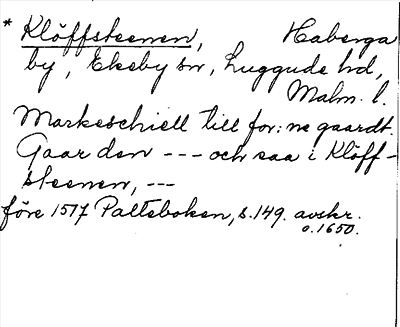 * Klöffsteenen, Haberga
by, Ekeby sn, Luggude hd,
Malm. l.
Markeschiell till for: ne gaardt.
Gaar den --- och saa i Klöff-
steenen, ---
före 1517 Palteboken, s. 149. avskr.
o. 1650.